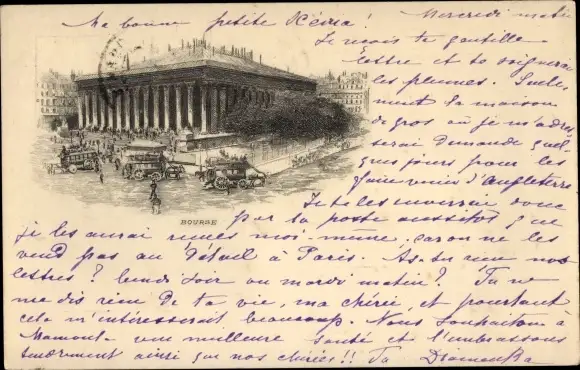 Ma bonne petite Kénia! Mercredi matin
Je reçois ta gentille
lettre et te soignerai
les plumes. Seule-
ment la maison
de gros où je m'adres-
serai demande quel-
ques jours pour les
faire venir d'Angleterre
Je te les enverrai donc
par la poste aussitôt que
je les aurai reçues moi même, car on ne les
vend pas au détail à Paris. As-tu reçu nos
lettres? lundi soir ou mardi matin? Tu ne
me dis rien de ta vie, ma chérie, et pourtant
cela m'intéresserait beaucoup. Nous souhaitons à
Maman une meilleure santé et l'embrassons
tendrement ainsi que nos chéries!! Ta
BOURSE